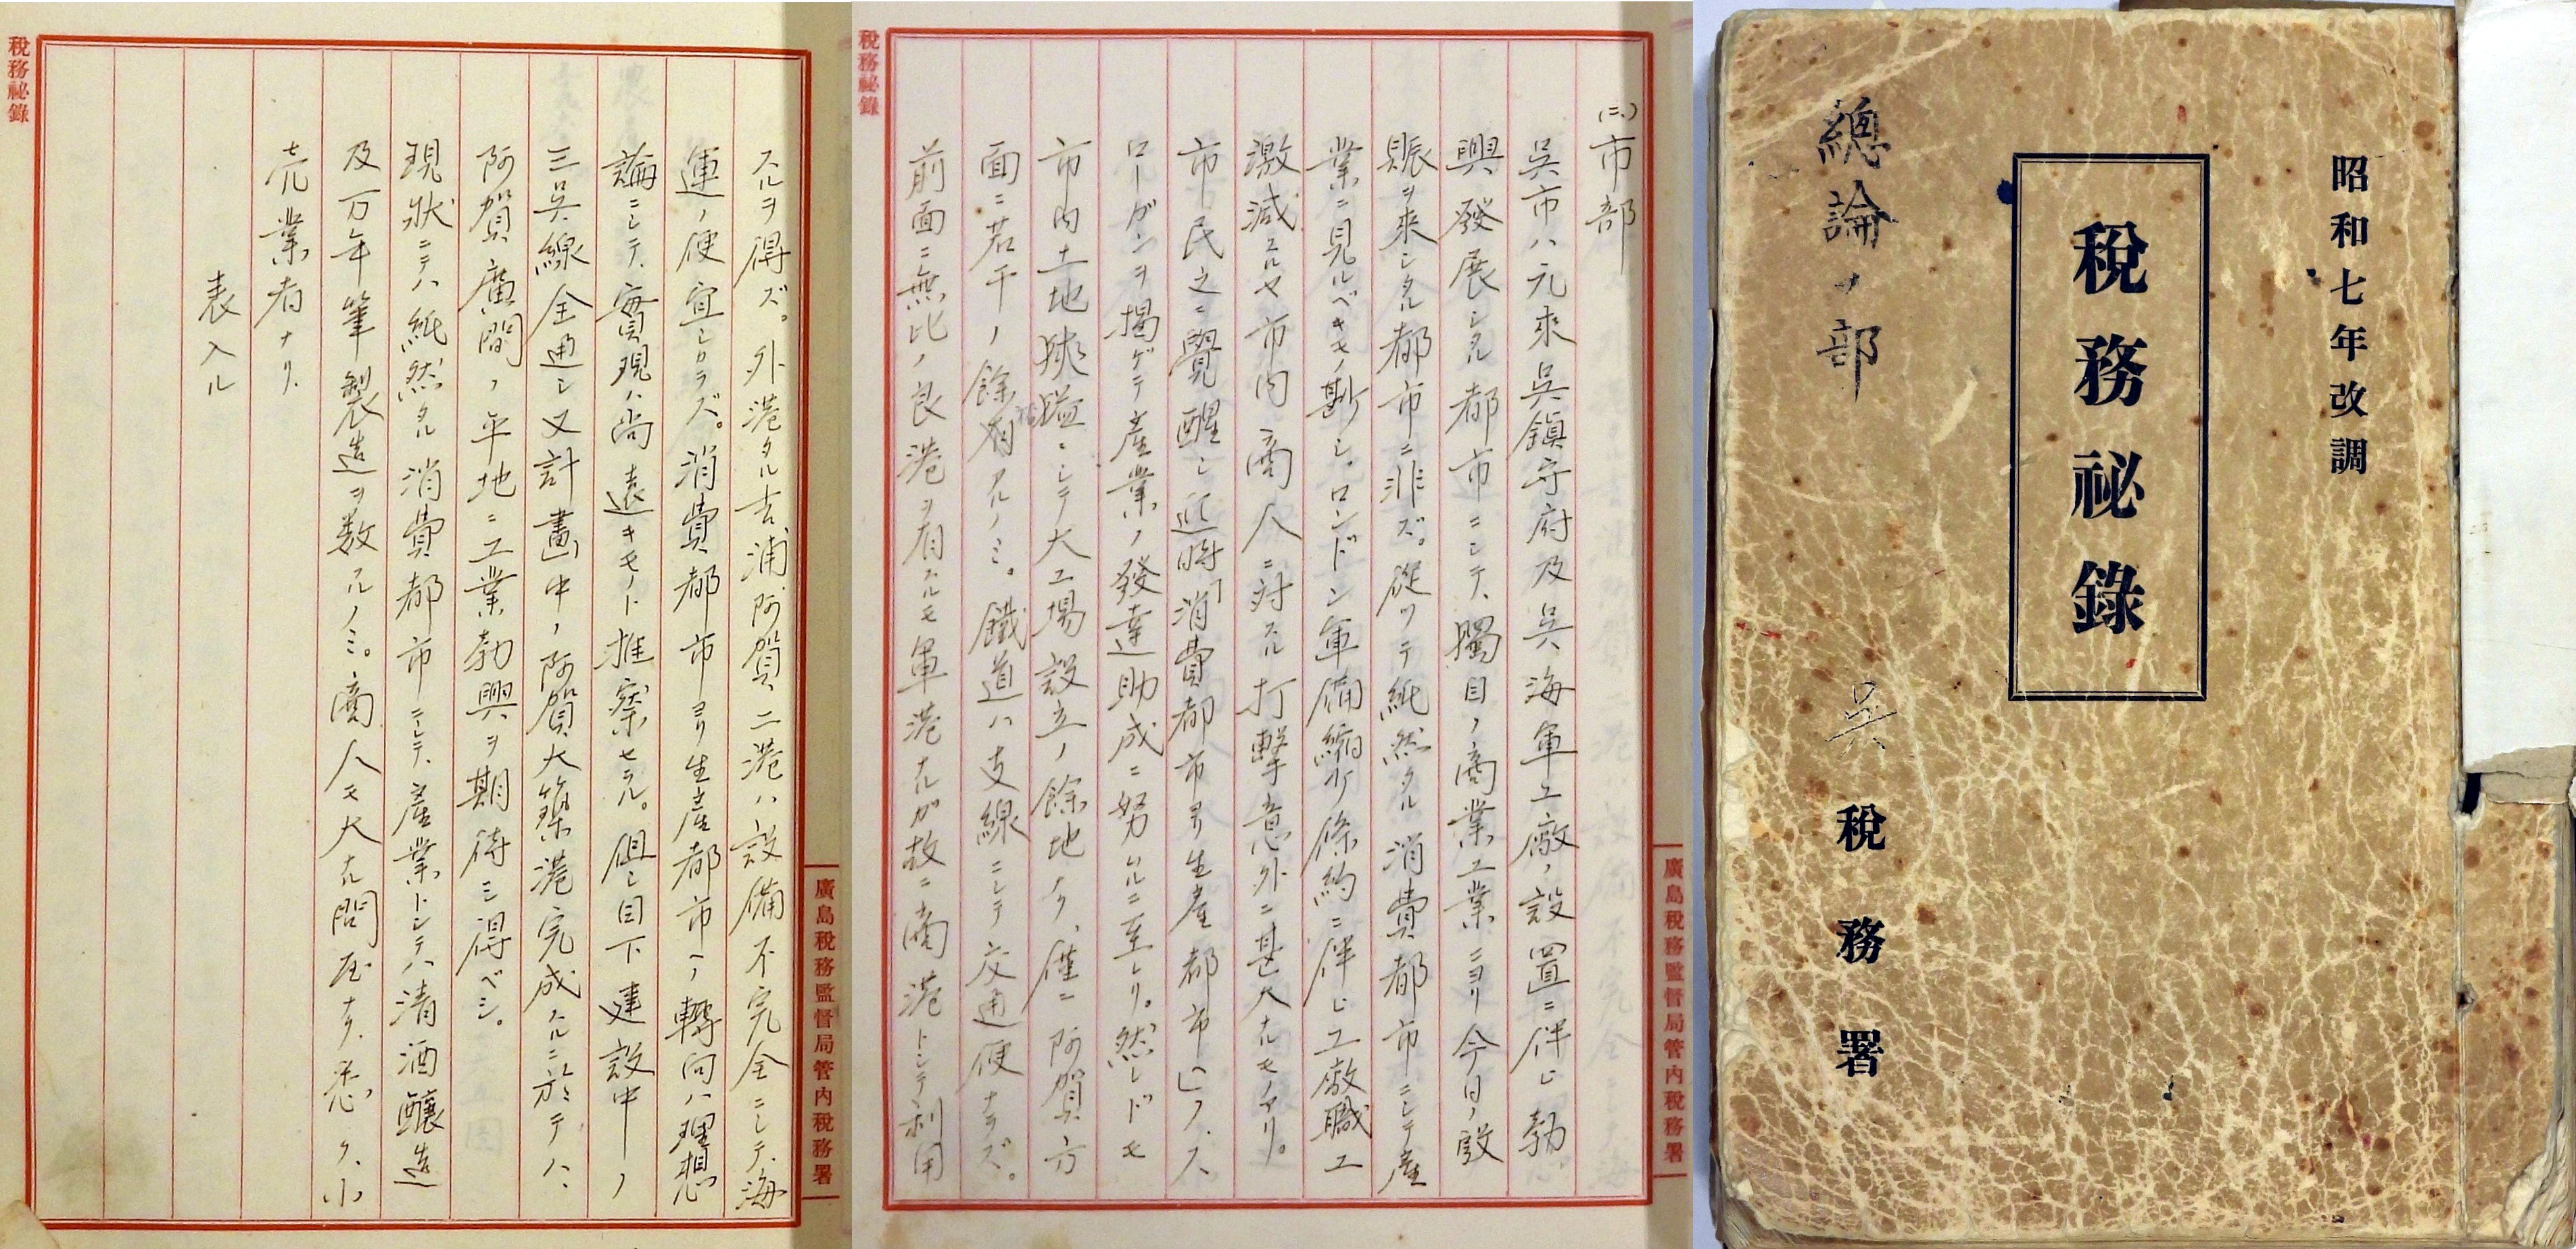 昭和七年改調
稅務祕錄
總論ノ部
呉 稅務署
稅務祕錄
廣島稅務監督局管內稅務署
(二)市部
呉市ハ元來呉鎭守府及呉海軍工廠ノ設置ニ伴ヒ勃
興發展シタル都市ニシテ、獨自ノ商業工業ニヨリ今日ノ殷
賑ヲ來シタル都市ニ非ズ。從ツテ純然タル消費都市ニシテ産
業ニ見ルベキモノ尠シ、ロンドン軍備縮少條約ニ伴ヒ工廠職工
激減スルヤ市內商人ニ対スル打擊意外ニ甚大ナルモノアリ。
市民之ニ覺醒シ近時「消費都市ヨリ生産都市ヘ」ノス
ローガンヲ揭ゲテ産業ノ發達助成ニ努ムルニ至レリ。然レドモ
市內土地狹隘ニシテ大工場設立ノ餘地ナク、僅ニ阿賀方
面ニ若干ノ餘有アルノミ。鐵道ハ支線ニシテ交通便ナラズ。
前面ニ無比ノ良港ヲ有スルモ軍港ナルガ故ニ商港トシテ利用
稅務祕錄
廣島稅務監督局管內稅務署
スルヲ得ズ。外港タル吉浦、阿賀二港ハ設備不完全ニシテ、海
運ノ便宜シカラズ。消費都市ヨリ生産都市ヘノ轉向ハ理想
論ニシテ、實現ハ尚遠キモノト推察セラル。但シ目下建設中ノ
三呉線全通シ又計畫中ノ阿賀大築港完成スルニ於テハ、
阿賀廣間ノ平地ニ工業勃興ヲ期待シ得ベシ。
現狀ニテハ純然タル消費都市ニシテ、産業トシテハ清酒釀造
及万年筆製造ヲ数フルノミ。商人モ大ナル問屋ナク、悉ク小
売業者ナリ。
表入ル